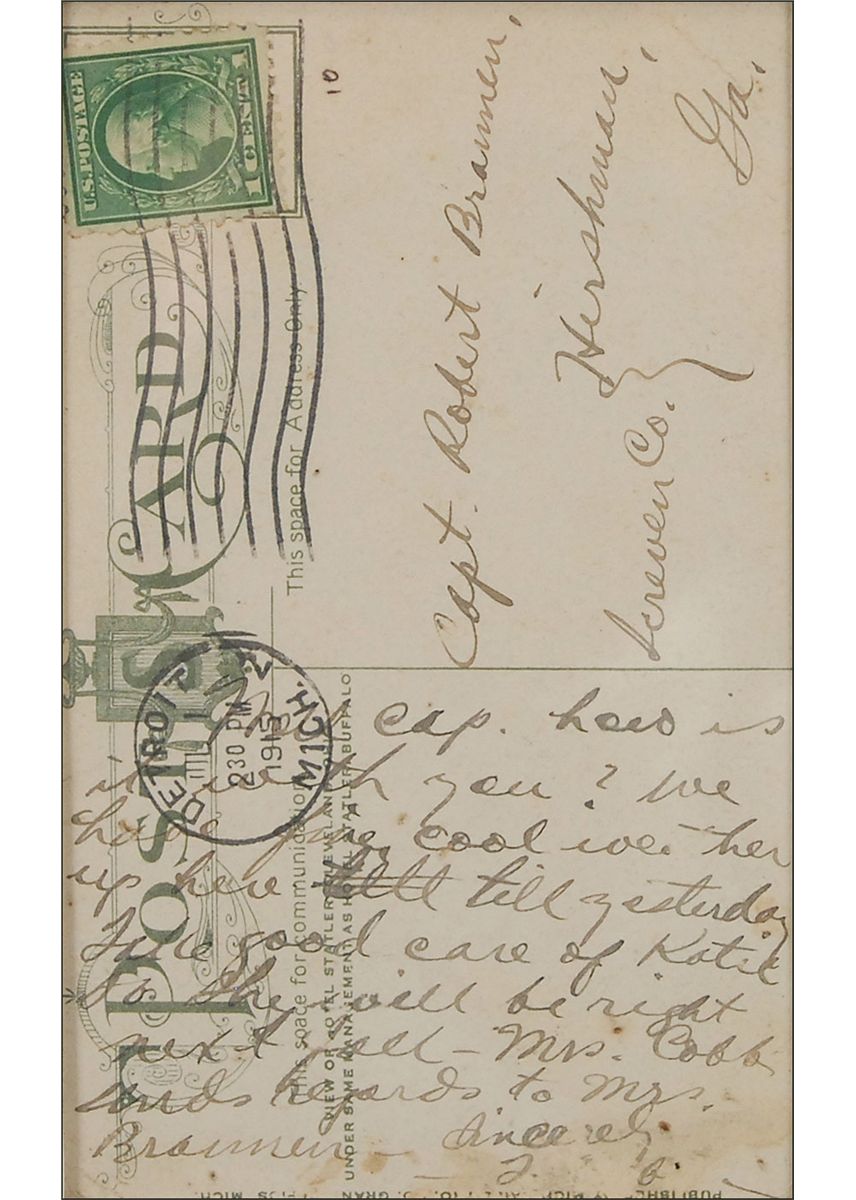 U.S. POSTAGE
1 CENT 1
10
POST CARD
This space for Address Only.
This space for communication
VIEW OF HOTEL STATLER, CLEVELAND
UNDER SAME MANAGEMENT AS HOTEL STATLER, BUFFALO
DETROIT
MICH.
2
230 PM
1913
Capt. Robert Brannen,
Hirshman,
Screven Co.
Ga.
Well cap. how is
it with you? We
have fine cool weather
up here till yesterday
Take good care of Katie
so she will be right
next fall – Mrs. Cobb
sends regards to Mrs.
Brannen – Sincerely